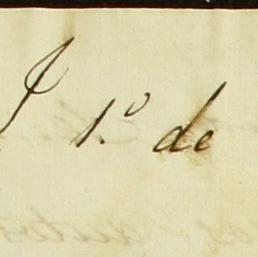 1.º de